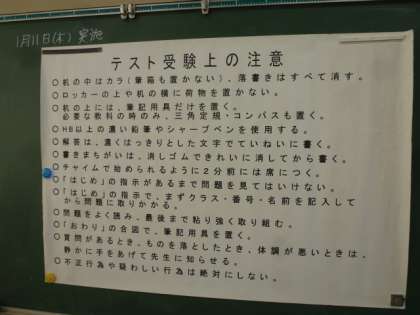 1月11日(木)実施
テスト受験上の注意
○机の中はカラ(筆箱も置かない)、落書きはすべて消す。
○ロッカーの上や机の横に荷物を置かない。
○机の上には、筆記用具だけを置く。
必要な教科の時のみ、三角定規・コンパスも置く。
○HB以上の濃い鉛筆やシャープペンを使用する。
○解答は、濃くはっきりとした文字でていねいに書く。
○書きまちがいは、消しゴムできれいに消してから書く。
○チャイムで始められるように2分前には席につく。
○「はじめ」の指示があるまで問題を見てはいけない。
○「はじめ」の指示で、まずクラス・番号・名前を記入して
から問題に取りかかる。
○問題をよく読み、最後まで粘り強く取り組む。
○「おわり」の合図で、筆記用具を置く。
○質問があるとき、ものを落としたとき、体調が悪いときは、
静かに手をあげて先生に知らせる。
○不正行為や疑わしい行為は絶対にしない。